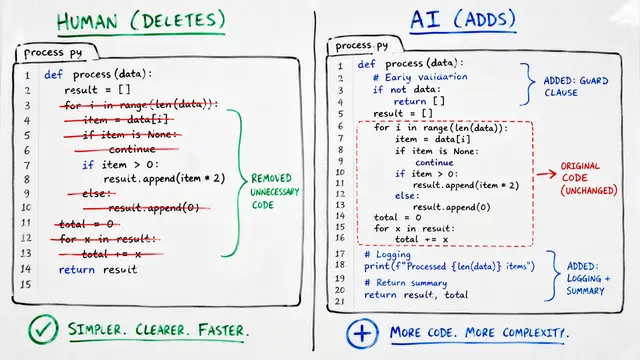 HUMAN (DELETES)
process py
1 def process (data):
2 result = []
3 for i in range(len(data)):
4 item = data[i]
5 if item is None:
6 continue
7 if item > 0:
8 result.append(item * 2)
9 else:
10 result.append(0)
11 total = 0
12 for x in result:
13 total += x
14 return result
15
REMOVED
UNNECESSARY
CODE
SIMPLER. CLEARER. FASTER.
AI (ADDS)
process.py
1 def process (data):
2 # Early validation
3 if not data:
4 return []
5 result = []
6 for i in range(len(data)):
7 item = data[i]
8 if item is None:
9 continue
10 if item > 0:
11 result.append(item * 2)
12 else:
13 result.append(0)
14 total = 0
15 for x in result:
16 total += x
17 # Logging
18 print(f"Processed {len(data)} items")
19 # Return summary
20 return result, total
21
ADDED: GUARD
CLAUSE
ORIGINAL
CODE
(UNCHANGED)
ADDED:
LOGGING +
SUMMARY
MORE CODE. MORE COMPLEXITY.